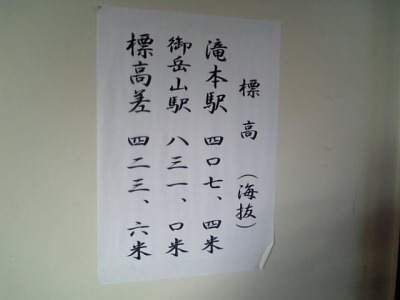 標高（海抜）
滝本駅 四〇七、四米
御岳山駅 八三一、〇米
標高差 四二三、六米